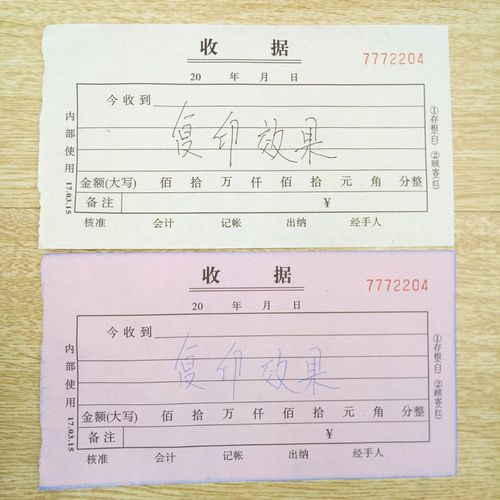 收 据
7772204
20 年 月 日
今收到
复印效果
金额(大写) 佰 拾 万 仟 佰 拾 元 角 分整
备注 ¥
核准 会计 记帐 出纳 经手人
内部使用 17.03.15
①存根(白) ②顾客(红)
收 据
7772204
20 年 月 日
今收到
复印效果
金额(大写) 佰 拾 万 仟 佰 拾 元 角 分整
备注 ¥
核准 会计 记帐 出纳 经手人
内部使用 17.03.15
①存根(白) ②顾客(红)